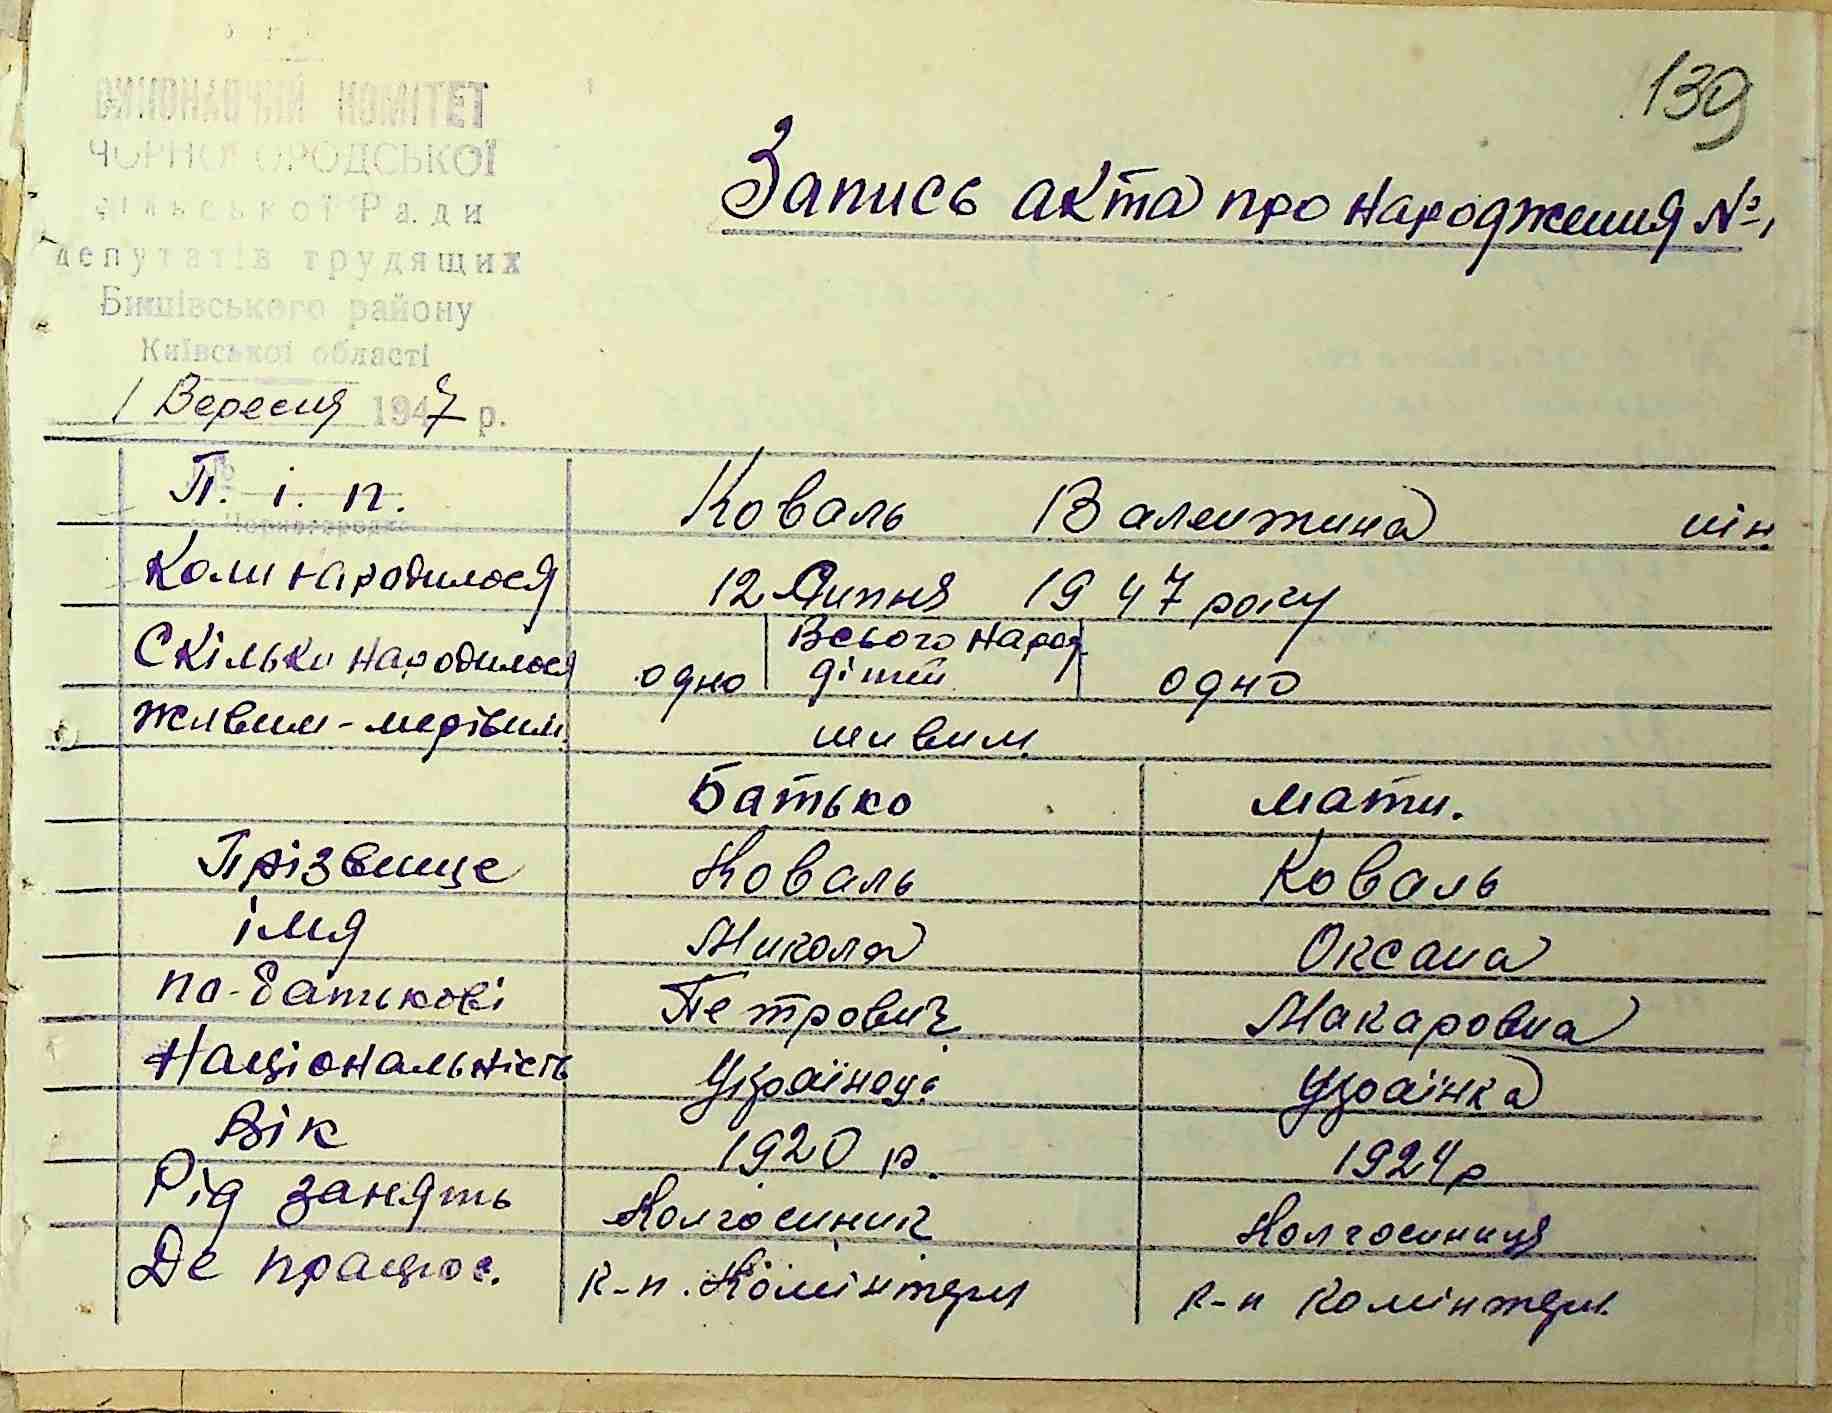 139
ВИКОНАВЧИЙ КОМІТЕТ
ЧОРНОГОРОДСЬКОЇ
сільської Ради
депутатів трудящих
Бишівського району
Київської області
1 Вересня 1947 р.
Запись акта про народження №
П. і. п. Коваль Валентина
Коли народилося 12 Липня 1947 року
Скільки народилося одно Всього народ. дітей одно
Живим-мертвим живим
Батько мати.
Прізвище Коваль Коваль
імя Микола Оксана
по-батькові Петрович Макаровна
Національність Українец Українка
Вік 1920 р. 1924 р
Рід занять Колгоспник Колгоспниця
Де працює. к-п. Комінтерн к-п Комінтерн